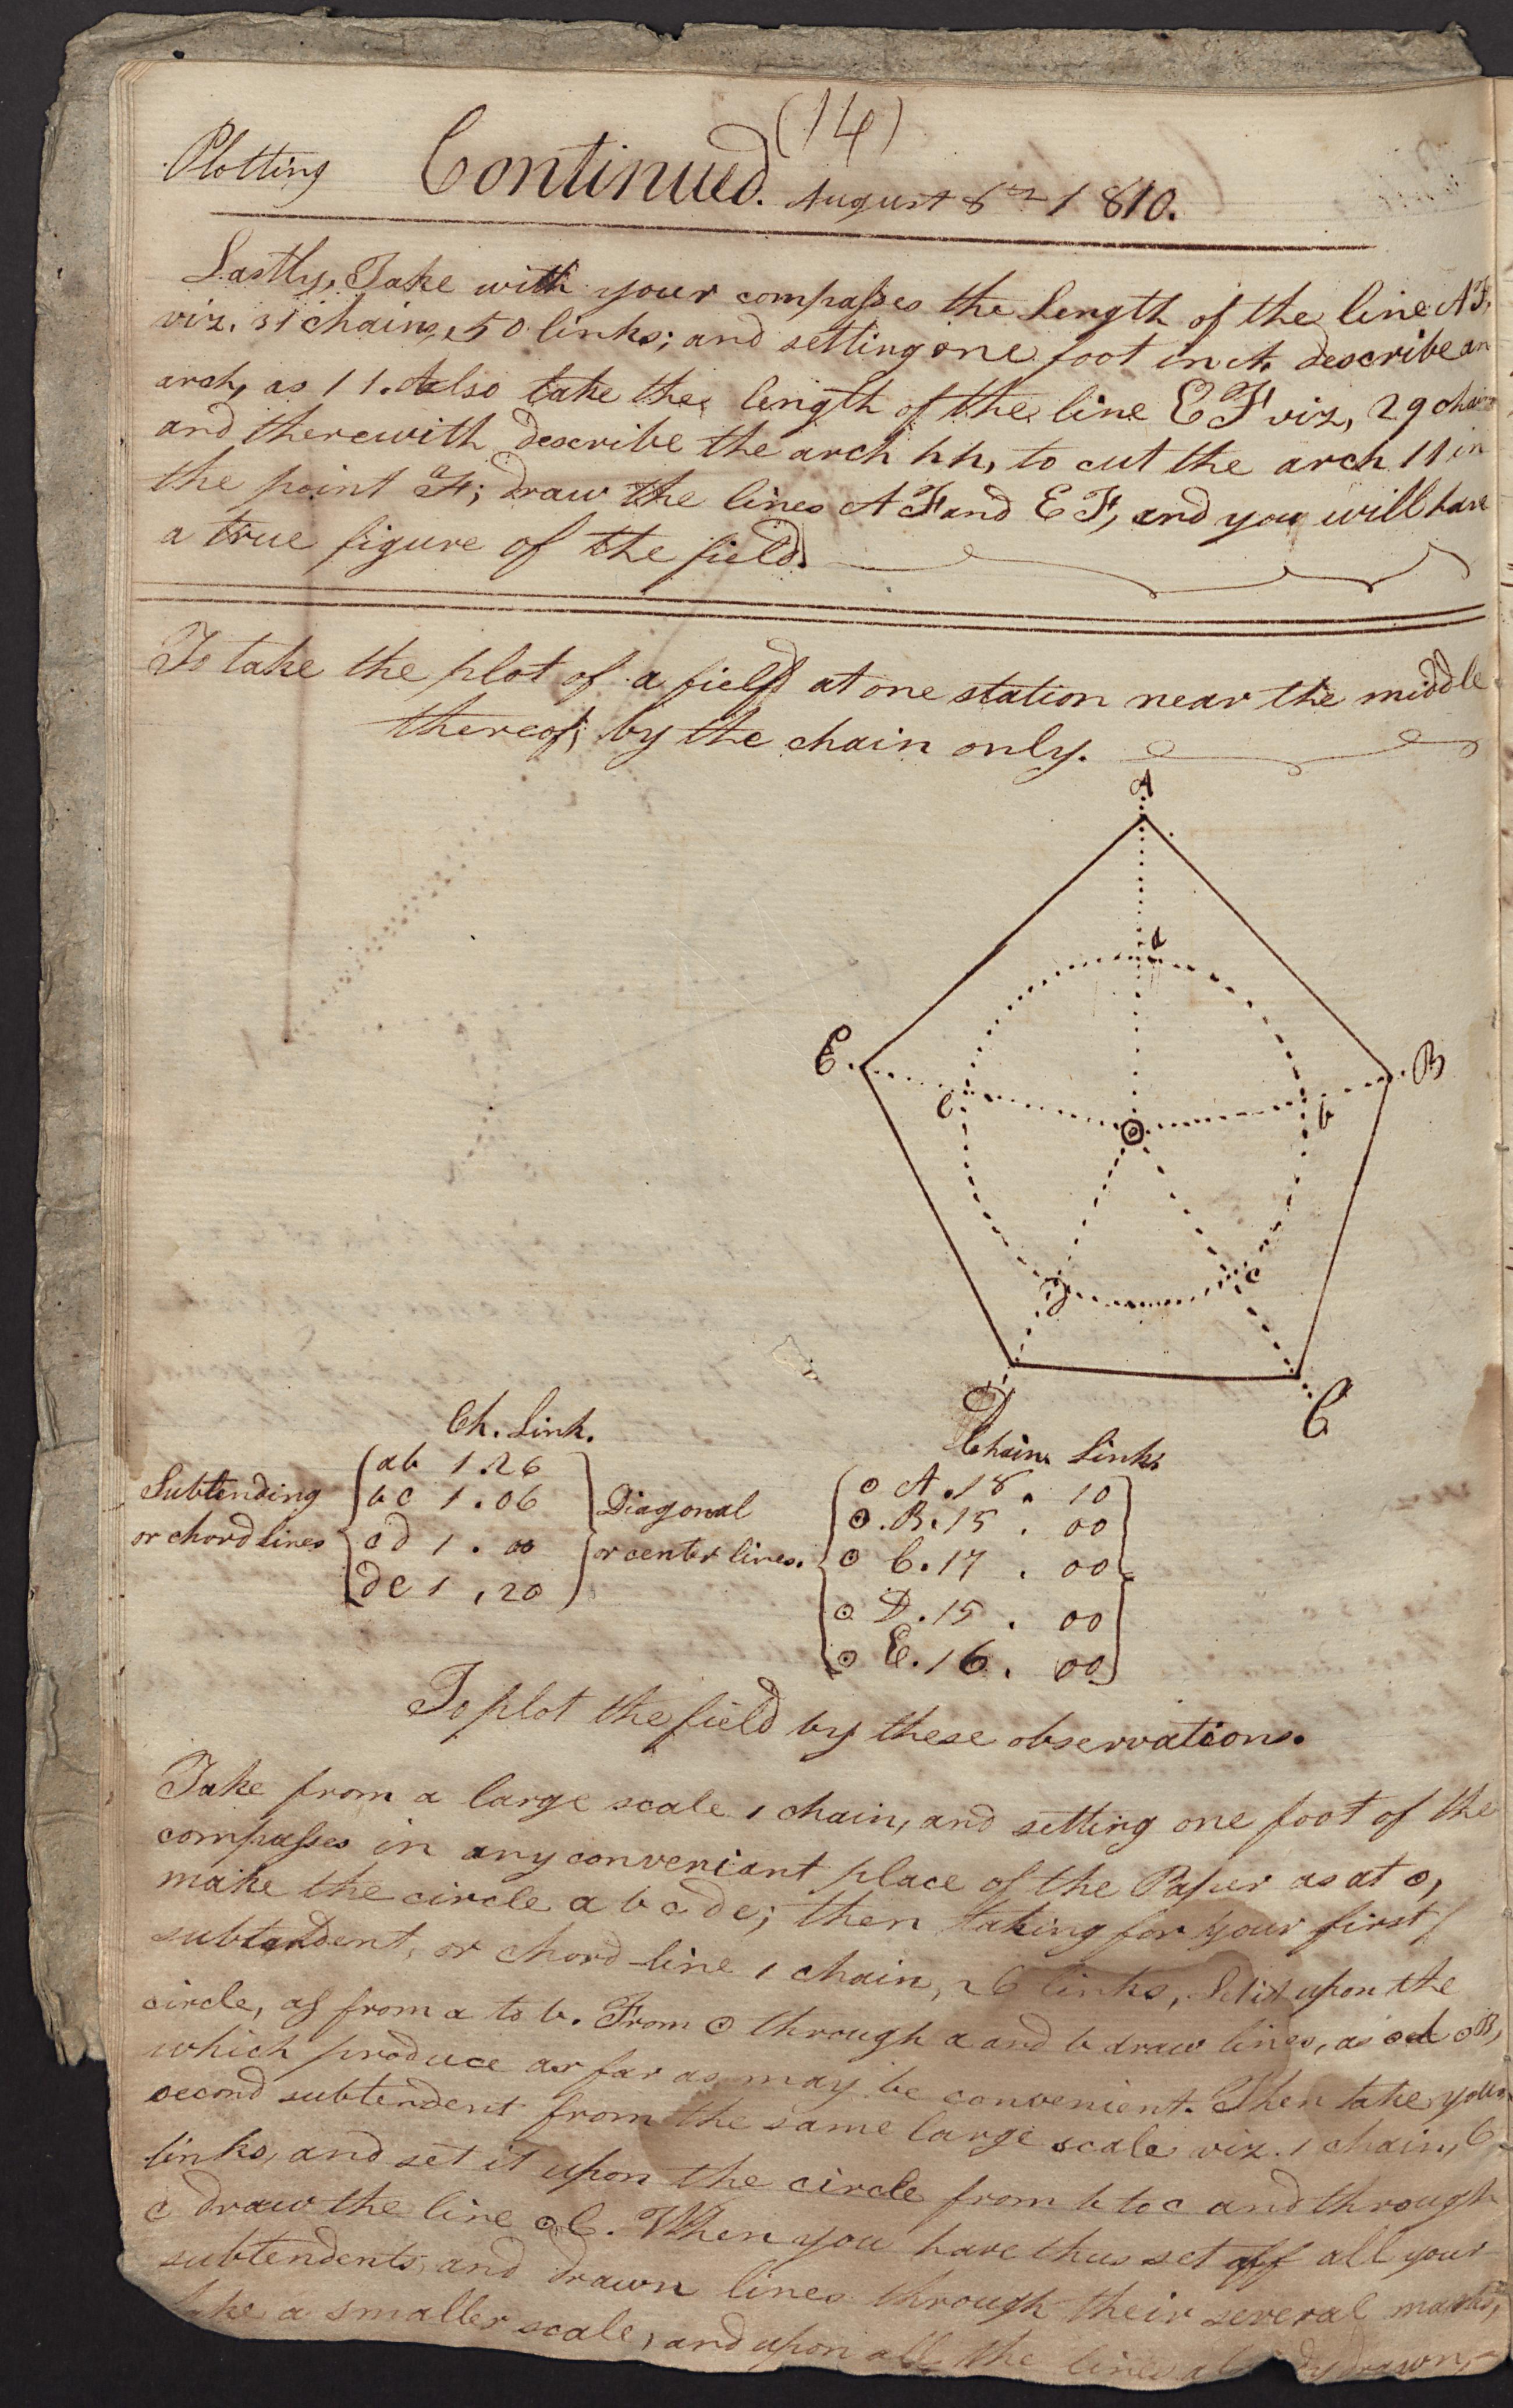 (14)
Plotting Continued. August 8th 1810.
Lastly, Take with your compasses the Length of the line AF,
viz. 31 chains, 50 links; and setting one foot in A. describe an
arch, as 11. Also take the length of the line EF viz, 29 chains
and therewith describe the arch hh, to cut the arch 11 in
the point F; Draw the lines AF and EF, and you will have
a true figure of the field.
To take the plot of a field at one station near the middle
thereof; by the chain only.
A
a
E
B
e
b
d
c
D
C
Ch. Link.
Chains Links
Subtending
or chord lines
ab 1.26
bc 1.06
cd 1.00
de 1,20
Diagonal
or center lines.
⊙ A.18. 10
⊙.B.15. 00
⊙ C.17. 00
⊙ D.15. 00
⊙ E.16. 00
To plot the field by these observations.
Take from a large scale 1 chain, and setting one foot of the
compasses in any conveniant place of the Paper as at ⊙,
make the circle a b c d e; then taking for your first
subtendent, or chord-line 1 chain, 26 links, Set it upon the
circle, as from a to b. From ⊙ through a and b draw lines, as ⊙A ⊙B,
which produce as far as may be convenient. Then take your
second subtendent from the same large scale viz. 1 chain, 6
links, and set it upon the circle from b to c and through
c Draw the line ⊙C. When you have thus set off all your
subtendents, and Drawn lines through their several marks,
take a smaller scale, and upon all the lines drawn,